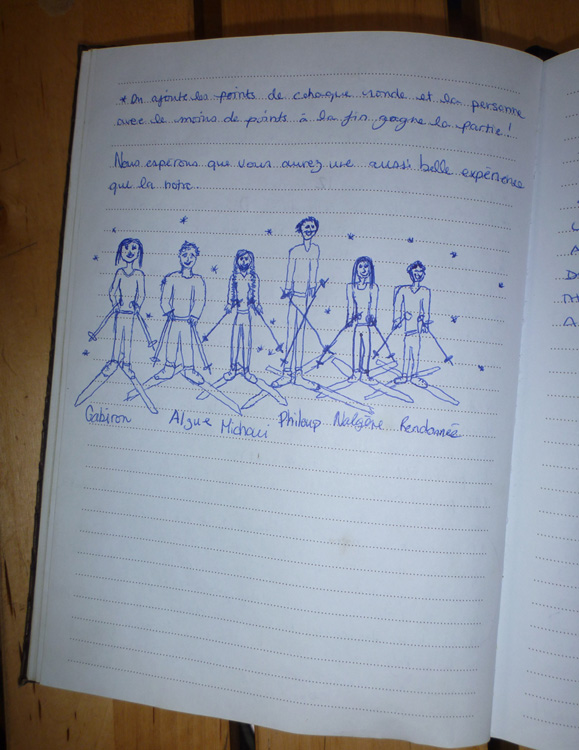 * On ajoute les points de chaque ronde et la personne
avec le moins de points à la fin gagne la partie!
Nous espérons que vous aurez une aussi belle expérience
que la notre.
Gabiron Algue Michoui Philoup Nalgène Rendonnée